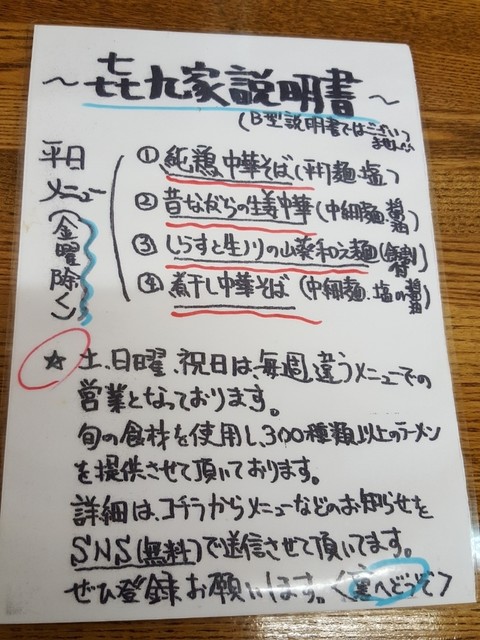 ～㐂九家説明書～
(B型説明書ではございませんい
平日
メニュー
(金曜除く)
① 純鶏中華そば(平打麺 塩)
② 昔ながらの生姜中華(中細麺 醤油)
③ しらすと生ノリの山薬和え麺(付)
④ 煮干し中華そば(中細麺、塩or醤油)
☆ 土、日曜、祝日は毎週違うメニューでの
営業となっております。
旬の食材を使用し、300種類以上のラーメン
を提供させて頂いております。
詳細は、コチラからメニューなどのお知らせを
SNS(無料)で送信させて頂いてます。
ぜひ登録お願いします。(裏へどうぞ)